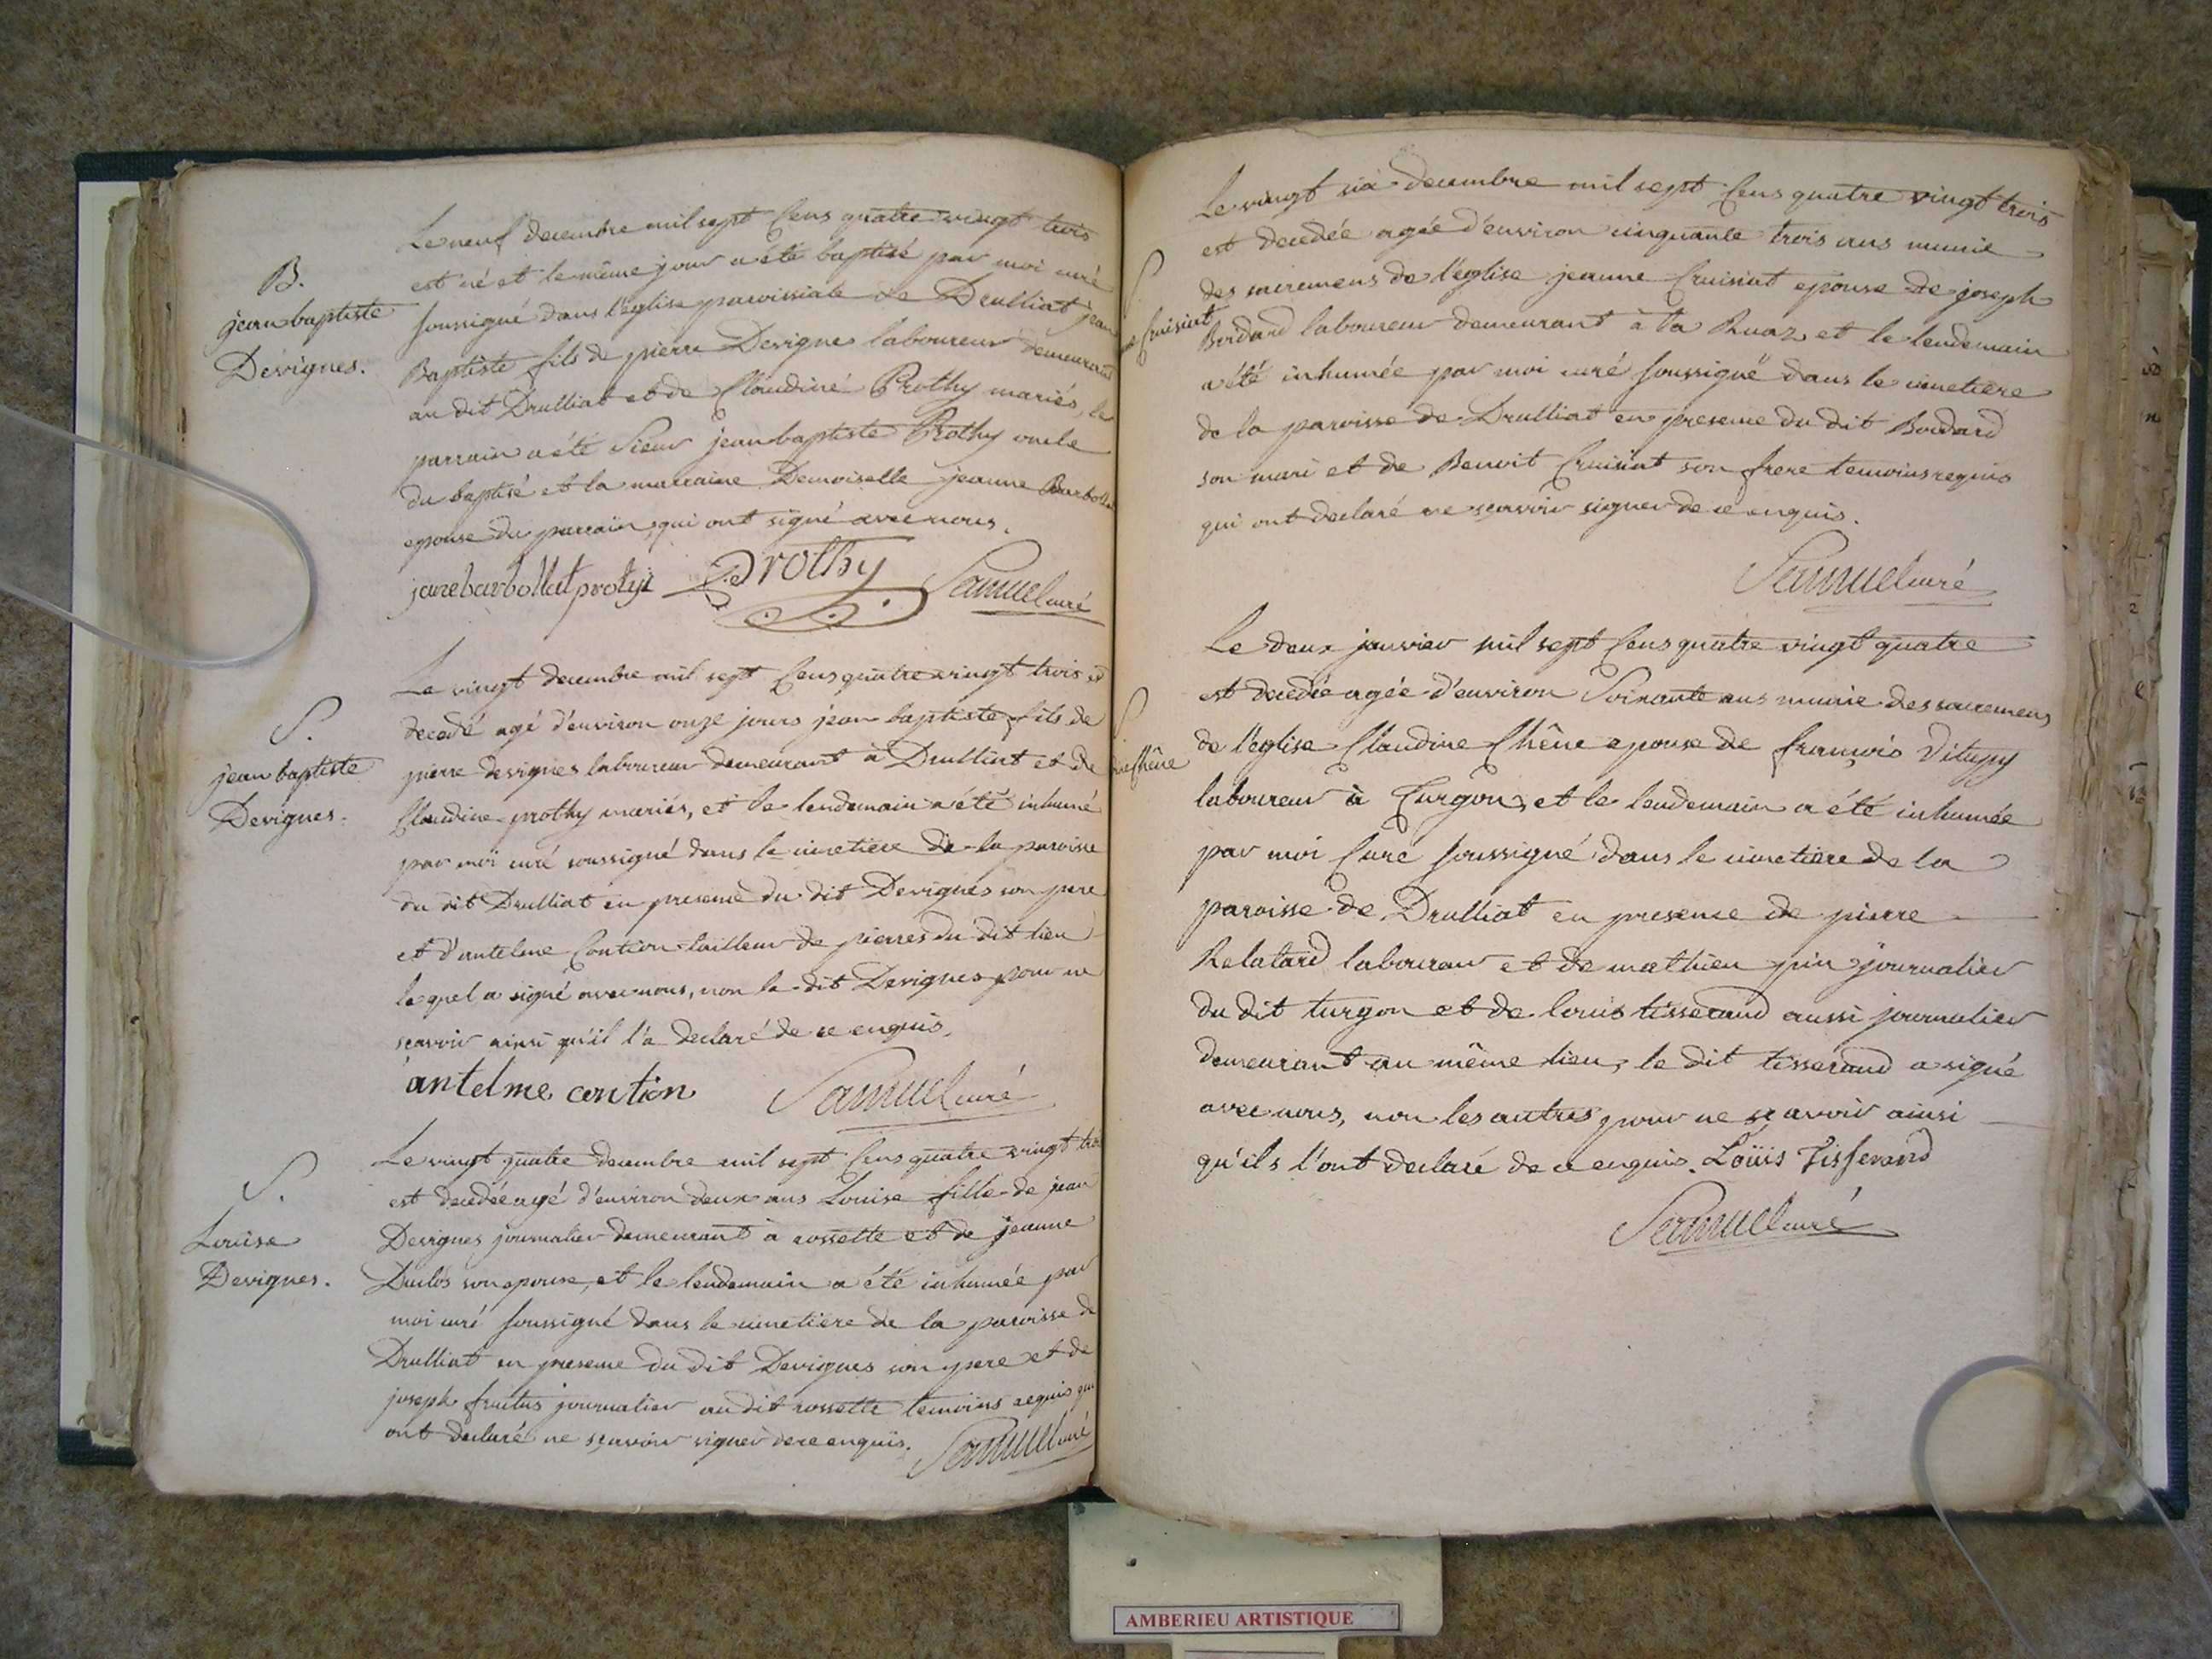 B.
jean baptiste
Devignes.
Le neuf decembre mil sept Cens quatre vingt trois
est né et le même jour a été baptisé par moi curé
soussigné dans l'eglise paroissiale de Drulliat jean
Baptiste fils de pierre Devignes laboureur demeurant
au dit Drulliat et de Claudine Prothy mariés, le
parrain a été Sieur jean baptiste Prothy oncle
du baptisé et la marraine Demoiselle jeanne Barbollat
epouse du parrain, qui ont signé avec nous.
jane barbollat protyi Prothy Samuel curé
S.
jean baptiste
Devignes.
Le vingt decembre mil sept Cens quatre vingt trois est
decedé agé d'environ onze jours jean baptiste fils de
pierre devignes laboureur demeurant à Drulliat et de
Claudine prothy mariés, et le lendemain a été inhumé
par moi curé soussigné dans le cimetiere de la paroisse
du dit Drulliat en presence du dit Devignes son pere
et d'antelme Contion tailleur de pierres du dit lieu
lequel a signé avec nous, non le dit Devignes pour ne
sçavoir ainsi qu'il l'a declaré de ce enquis.
antelme contion Samuel curé
S.
Louise
Devignes.
Le vingt quatre decembre mil sept Cens quatre vingt trois
est decedée agé d'environ deux ans Louise fille de jean
Devignes journalier demeurant à rossette et de jeanne
Duclos son epouse, et le lendemain a été inhumée par
moi curé soussigné dans le cimetiere de la paroisse de
Drulliat en presence du dit Devignes son pere et de
joseph fruitus journalier au dit rossette temoins requis qui
ont declaré ne sçavoir signer de ce enquis. Samuel curé
S
Cruisiat
Le vingt six decembre mil sept Cens quatre vingt trois
est decedée agée d'environ cinquante trois ans munie
des sacremens de l'eglise jeanne Cruisiat epouse de joseph
Bordard laboureur demeurant à la Ruaz et le lendemain
a été inhumée par moi curé soussigné dans le cimetiere
de la paroisse de Drulliat en presence du dit Bordard
son mari et de Benoit Cruisiat son frere temoins requis
qui ont declaré ne sçavoir signer de ce enquis.
Samuel curé
S
Chêne
Le deux janvier mil sept Cens quatre vingt quatre
est decedée agée d'environ Soixante ans munie des sacremens
de l'eglise Claudine Chêne epouse de françois Vitupy
laboureur à Turgon, et le lendemain a été inhumée
par moi Curé soussigné dans le cimetiere de la
paroisse de Drulliat en presence de pierre
Relatard laboureur et de mathieu pin journalier
du dit turgon et de louis tisserand aussi journalier
demeurant au même lieu, le dit tisserand a signé
avec nous, non les autres pour ne sçavoir ainsi
qu'ils l'ont declaré de ce enquis. Loüis Tisserand
Samuel curé
AMBERIEU ARTISTIQUE